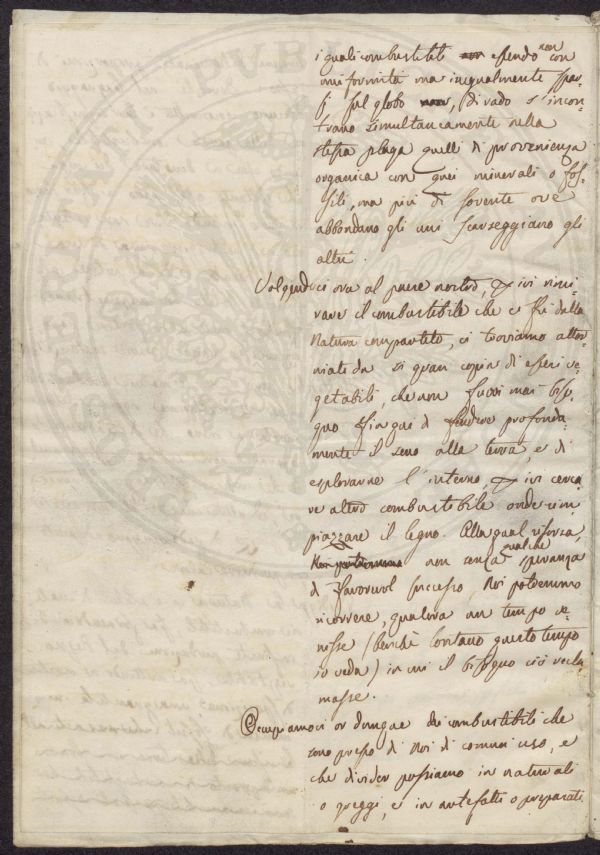 i quali combustibili essendo non con
uniformità ma inegualmente spar-
si sul globo, di rado s'incon-
trano simultaneamente nella
stessa plaga quelli di provenienza
organica con quei minerali o fos-
sili, ma più di sovente ove
abbondano gli uni scarseggiano gli
altri.
Volgendoci ora al paese nostro, & ivi rinve-
nare il combustibile che ci fu dalla
Natura compartito, ci troviamo attor-
niati da sì gran copia di esseri ve-
getabili, che non fuvvi mai biso-
gno fin qui di fendere profonda-
mente il seno alla terra, e di
esplorarne l'interno, & ivi cerca-
re altro combustibile onde rim-
piazzare il legno. Alla qual risorsa,
non senza qualche speranza
di favorevol successo, Noi potremmo
ricorrere, qualora un tempo ve-
nisse (benchè lontano questo tempo
io veda) in cui il bisogno ciò recla-
masse.
Occupiamoci or dunque dei combustibili che
sono presso di Noi di comun uso, e
che divider possiamo in naturali
o greggi, e in artefatti o preparati.
PVBL